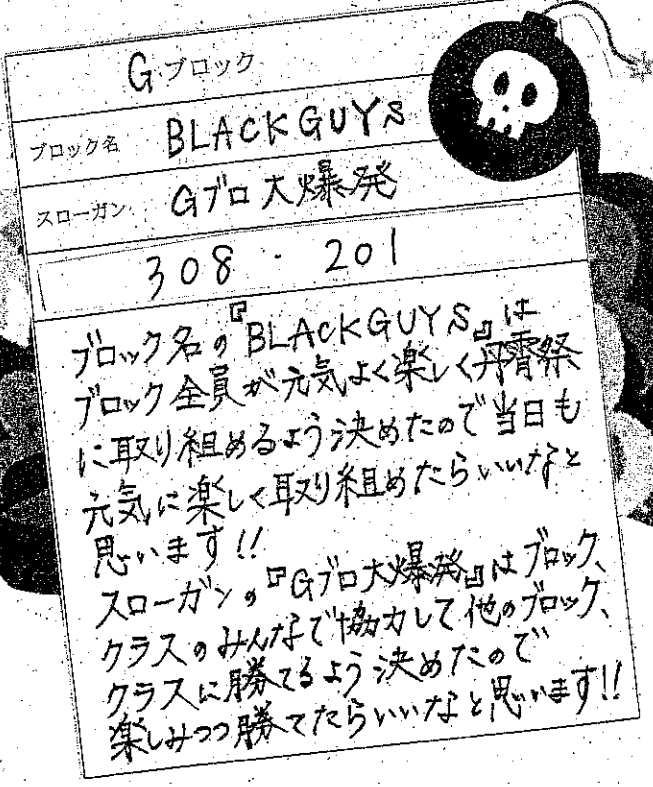 Gブロック
ブロック名 BLACKGUYS
スローガン Gブロ大爆発
308・201
ブロック名の『BLACKGUYS』は
ブロック全員が元気よく楽しく丹霄祭
に取り組めるよう決めたので当日も
元気に楽しく取り組めたらいいなと
思います!!
スローガンの『Gブロ大爆発』はブロック、
クラスのみんなで協力して他のブロック、
クラスに勝てるよう決めたので
楽しみつつ勝てたらいいなと思います!!